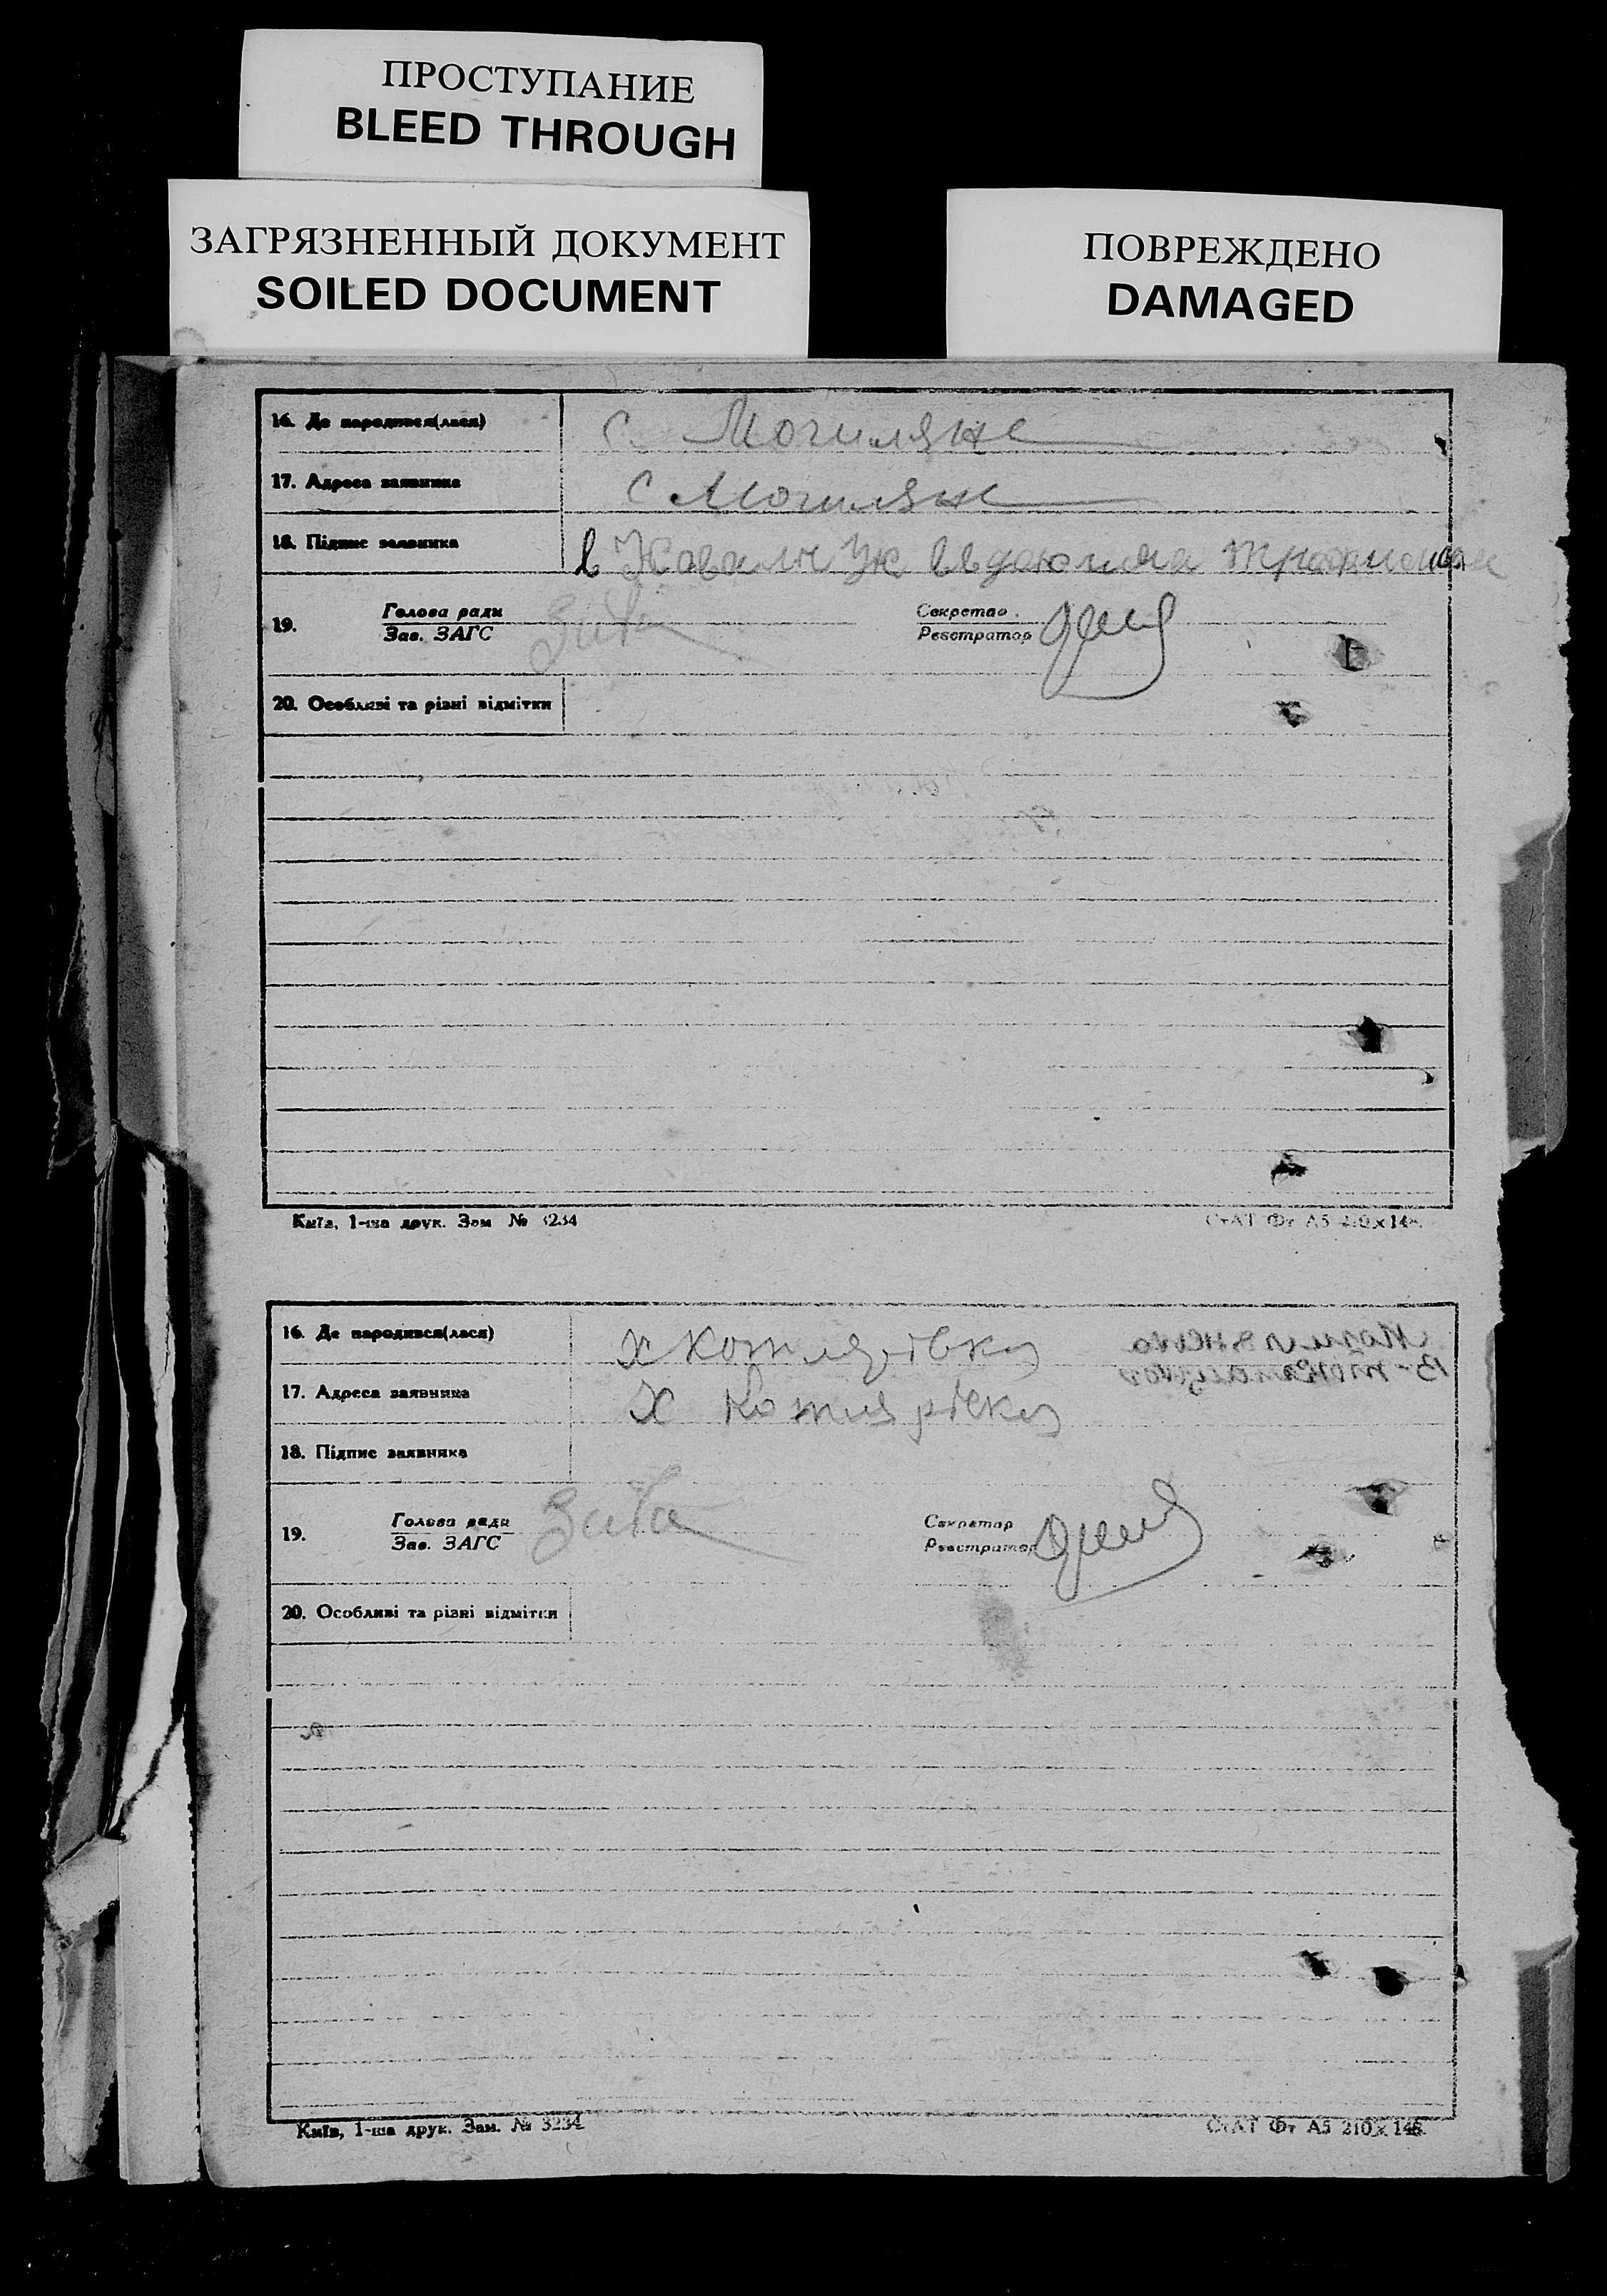 ПРОСТУПАНИЕ
BLEED THROUGH
ЗАГРЯЗНЕННЫЙ ДОКУМЕНТ
SOILED DOCUMENT
ПОВРЕЖДЕНО
DAMAGED
16. Де народився(лася) с. Могиляне
17. Адреса заявника с Могиляне
18. Підпис заявника
19. Голова ради Секретар
Зав. ЗАГС Реєстратор
20. Особливі та різні відмітки
Київ, 1-ша друк. Зам № 3234 СтАТ Фт А5 210×148.
16. Де народився(лася) х Котлярівка
17. Адреса заявника Х Котлярівка
18. Підпис заявника
19. Голова ради Секретар
Зав. ЗАГС Реєстратор
20. Особливі та різні відмітки
Київ, 1-ша друк. Зам. № 3234 СтАТ Фт А5 210×148.